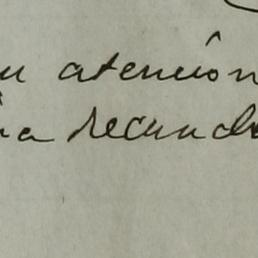 u atención
ia secunda